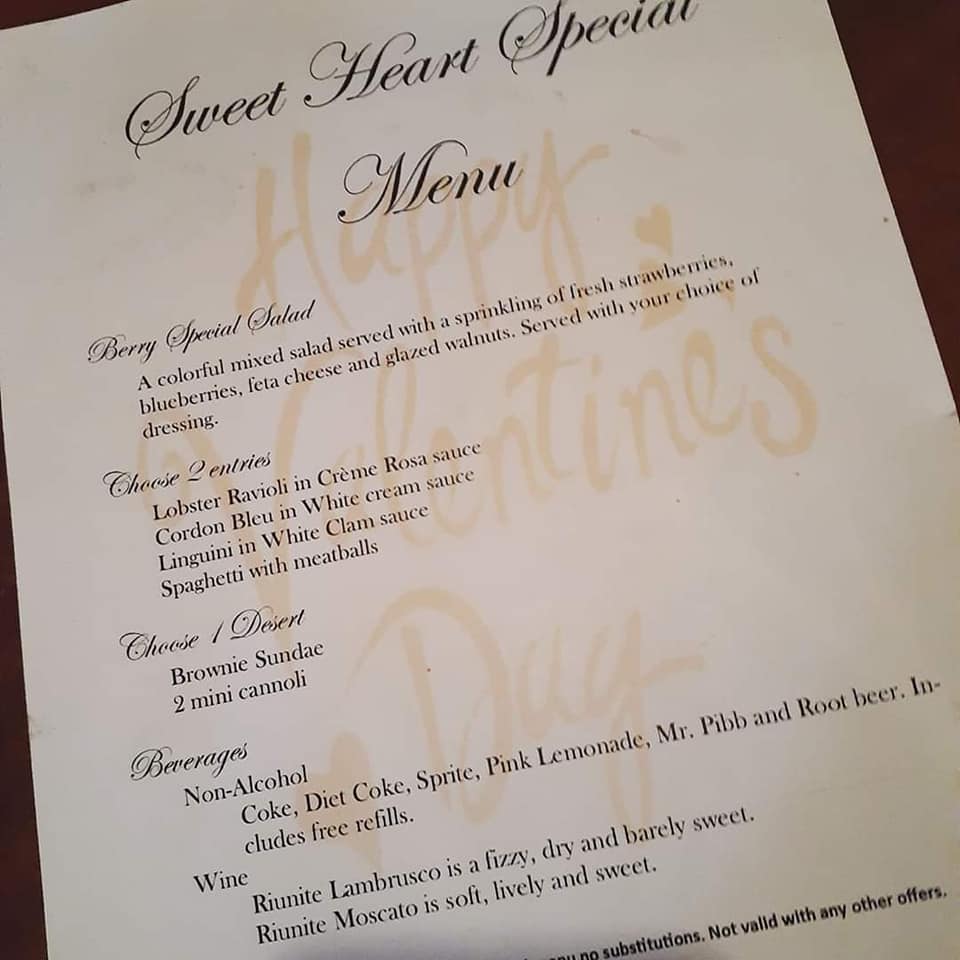 Sweet Heart Special
Menu
Happy
Valentine's
Day
Berry Special Salad
A colorful mixed salad served with a sprinkling of fresh strawberries,
blueberries, feta cheese and glazed walnuts. Served with your choice of
dressing.
Choose 2 entries
Lobster Ravioli in Crème Rosa sauce
Cordon Bleu in White cream sauce
Linguini in White Clam sauce
Spaghetti with meatballs
Choose 1 Desert
Brownie Sundae
2 mini cannoli
Beverages
Non-Alcohol
Coke, Diet Coke, Sprite, Pink Lemonade, Mr. Pibb and Root beer. In-
cludes free refills.
Wine
Riunite Lambrusco is a fizzy, dry and barely sweet.
Riunite Moscato is soft, lively and sweet.
no substitutions. Not valid with any other offers.